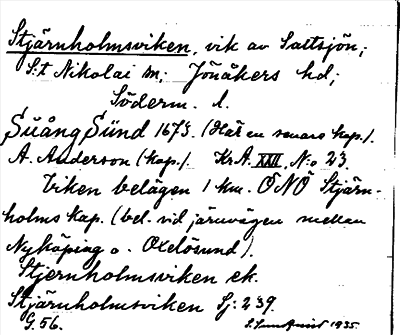 Stjärnholmsviken, vik av Saltsjön;
S:t Nikolai sn; Jönåkers hd;
Söderm. l.
Süång Sünd 1673. (Här en senare kop.).
A. Anderson (kop.). Kr.A. XXII, N:o 23.
Viken belägen 1 km. ÖNÖ Stjärn-
holms kap. (bel. vid järnvägen mellan
Nyköping o. Oxelösund).
Stjernholmsviken ek.
Stjärnholmsviken Sj: 239.
G. 56. 1935.